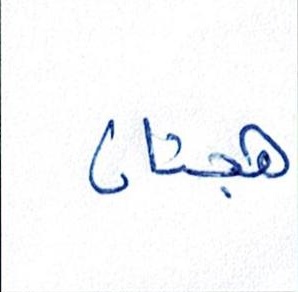 هجتان